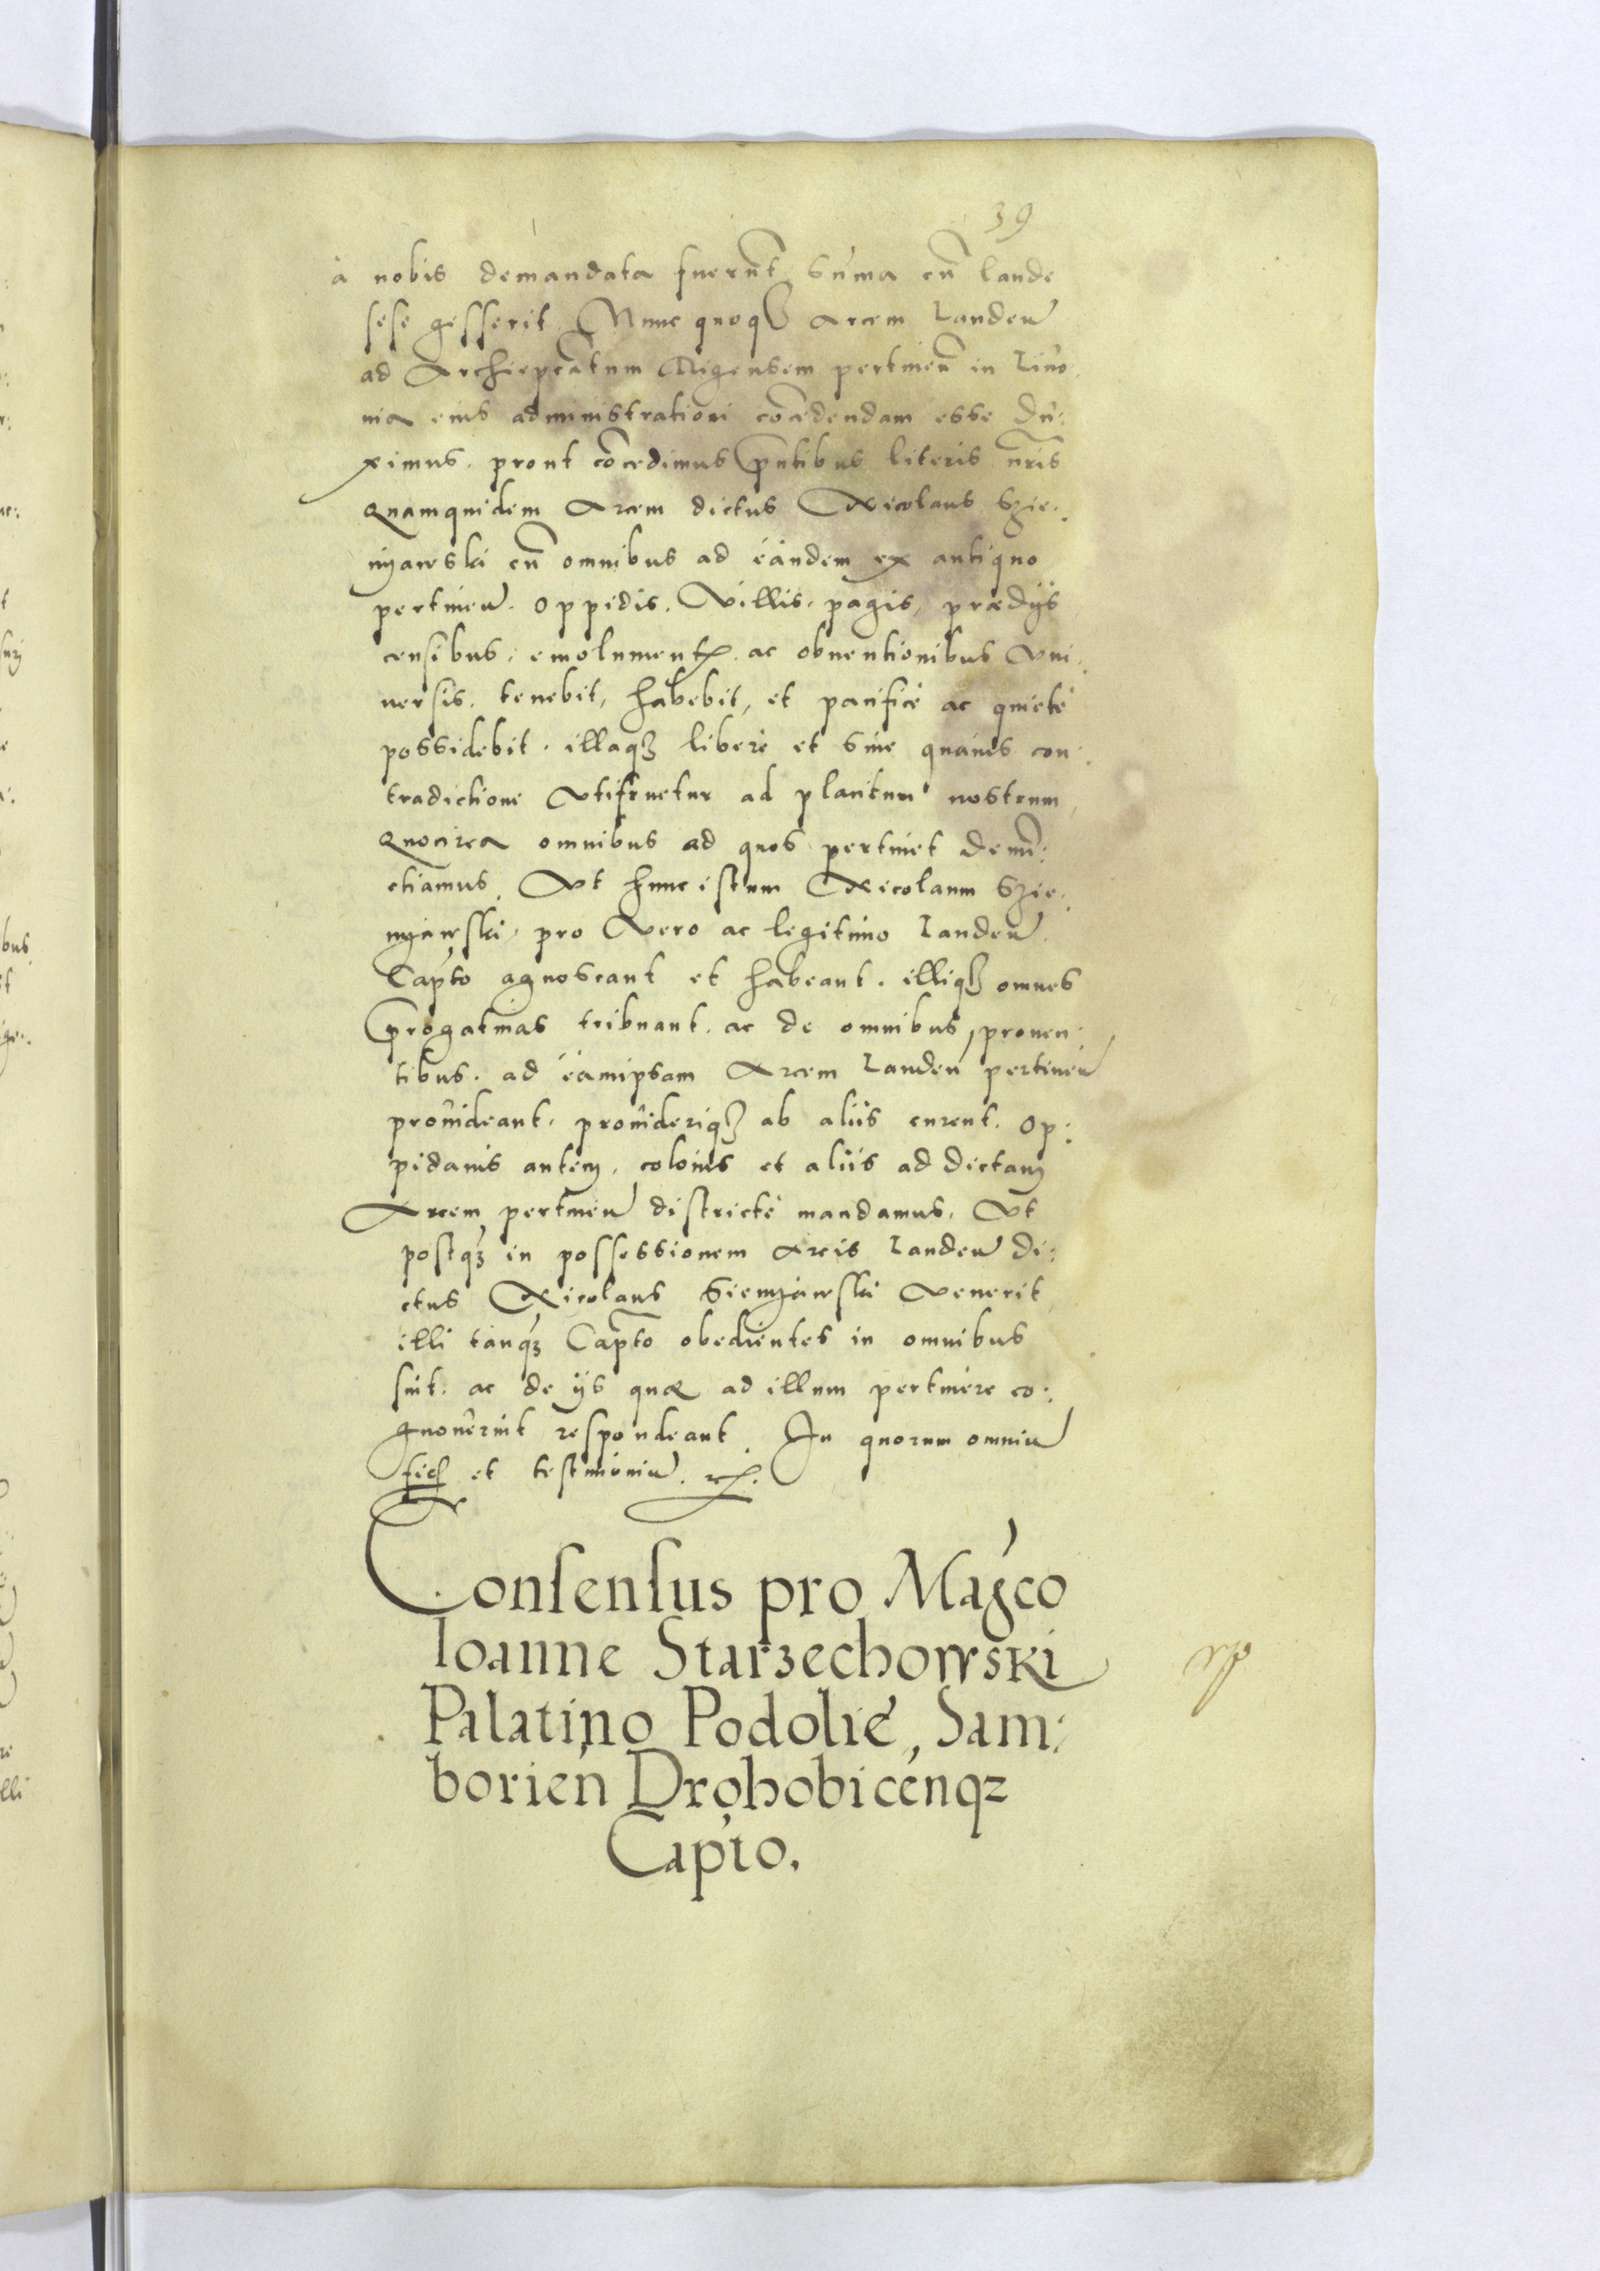 39
à nobis demandata fuerūt, sūma cū laude
sese gesserit. Nunc quoqȝ Arcem Landeñ
ad Archiepcātum Rigensem pertineñ in Livo,
nia eius administrationi cōcedendam esse du:
ximus, prout cōcedimus pñtibus literis ñris
Quamquidem Arcem dictus Nicolaus Szie:
nyawski cū omnibus ad eandem ex antiquo
pertineñ. oppidis, Villis, pagis, prædijs
censibus, emolument. ac obventionibus Vni:
versis, tenebit, habebit, et pacificè ac quietè
possidebit, illaqȝ liberè et sine quavis con:
tradictione Vtifruetur ad placitum nostrum,
Quocirca omnibus ad quos pertinet denū:
ctiamus, Vt hunc istum Nicolaum Szie:
nyawski, pro Vero ac legitimo Landeñ.
Capto agnoscant et habeant, illiqȝ omnes
progativas tribuant, ac de omnibus proven:
tibus, ad eamipsam Arcem Landeñ pertineñ
provideant, provideriqȝ ab aliis curent, Op:
pidanis autem, colonis et aliis ad dictam
Arcem pertineñ districtè mandamus, Vt
postqȝ in possessionem Arcis Landeñ di:
ctus Nicolaus Sienyawski Venerit,
illi tanqȝ Capto obedientes in omnibus
sint, ac de ijs quæ ad illum pertinere co:
gnoverint respondeant. In quorum omniū
fid et testimoniū.
Consensus pro Mag̃co
Ioanne Starzechowski
Palatino Podolie, Sam:
borień Drohobicenqȝ
Capto.